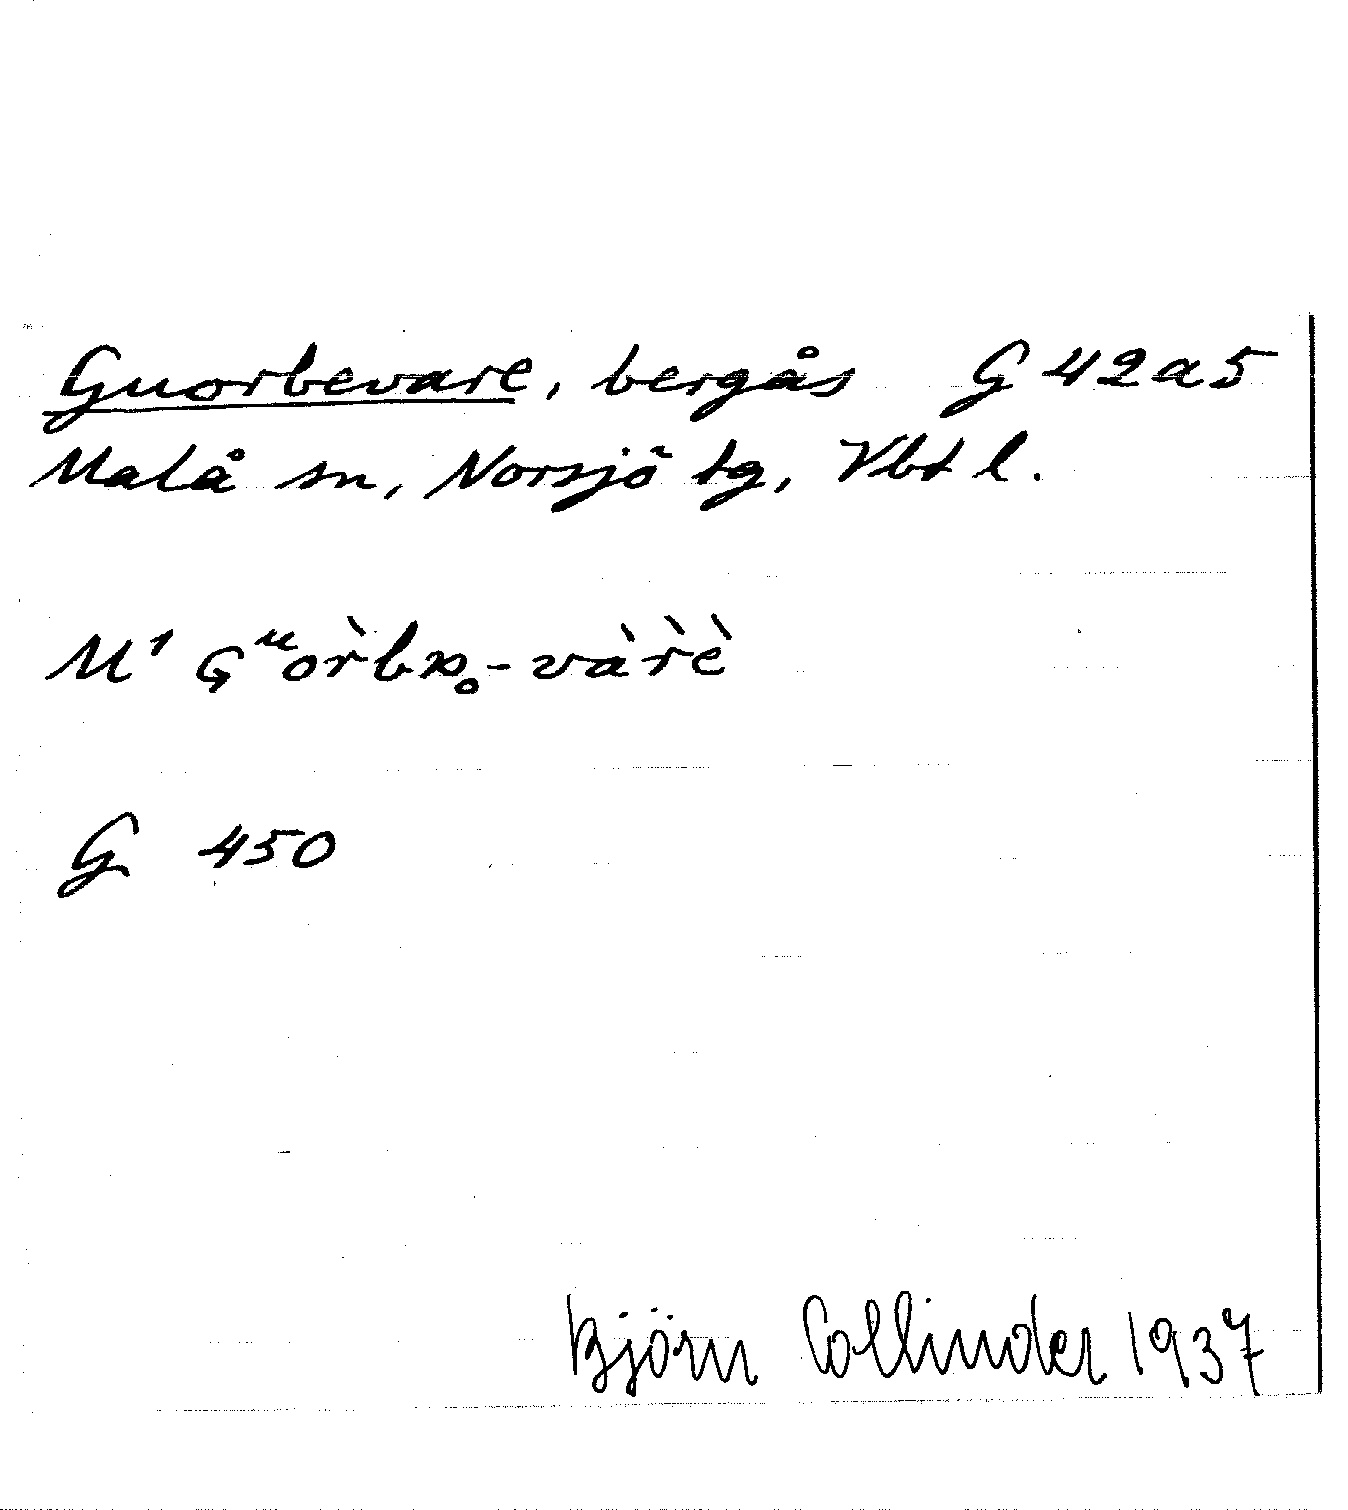 Guorbevare, bergås G 42a5
Malå sn, Norsjö tg, Vbt l.
M¹ Gᵘor̀bɒ̥-vàr̀è
G 450
Björn Collinder 1937